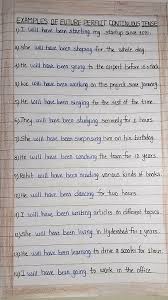 EXAMPLES OF FUTURE PERFECT CONTINUOUS TENSE
I will have been starting my startup since 2011.
She will have been shopping for the whole day.
will have been going to the airport before 10 o'clock.
We will have been working on the project since January.
He will have been singing for the rest of the time.
They will have been studying seriously for 2 hours.
She will have been surprising him on his birthday.
He will have been coaching the team for 12 years.
Rohit will have been reading various kinds of books.
He will have been dancing for two hours.
I will have been writing articles on different topics.
She will have been living in Hyderabad for 2 years.
He will have been learning to drive a scooter for 1 hour.
I will have been going to work in the office.